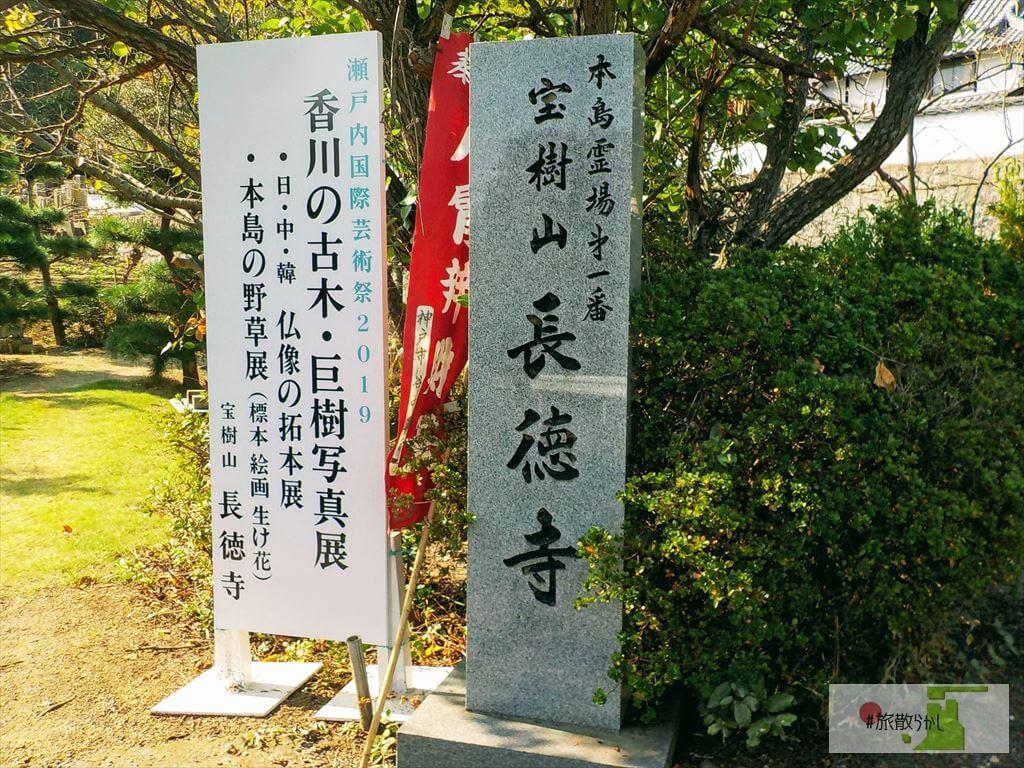 瀬戸内国際芸術祭2019
香川の古木・巨樹写真展
・日・中・韓 仏像の拓本展
・本島の野草展(標本 絵画 生け花)
宝樹山 長徳寺
本島霊場才一番
宝樹山 長徳寺
#旅散らかし